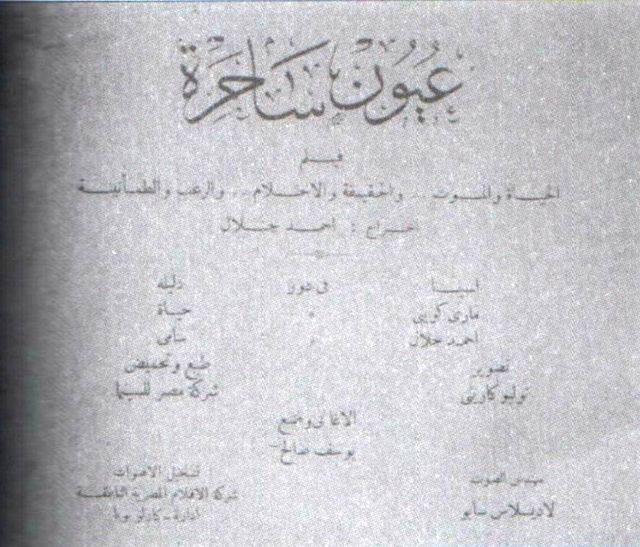 عُيُون سَاحِرَة
فيلم
الحياة والموت ... والحقيقة والاحلام ... والرعب والطمأنينة
اخراج : احمد جلال
اسيا في دور دليله
ماري كويني " حياة
احمد جلال " سامى
تصوير طبع وتحميض
توليو كاريني شركة مصر للسينما
الاغاني وضع
يوسف صالح
مهندس الصوت تسجيل الاصوات
لاديسلاس سابو شركة الافلام المصرية الناطقة
ادارة - كارلو بوبا